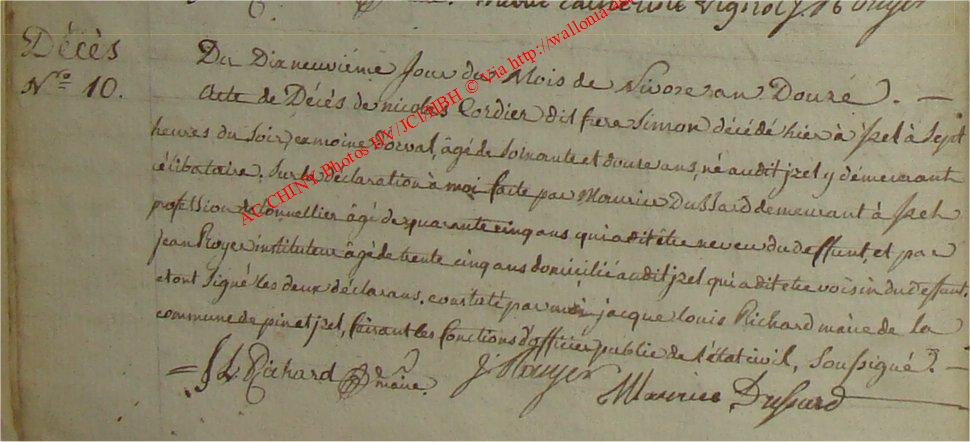 marie catherine vignol J. Rouyer
Décès
N.ro 10.
Du Dixneuvième Jour du Mois de Nivose an Douze. —
Acte de Décès de nicolas Cordier dit frere Simon décédé hier à Izel à Sept
heures du soir, ex moine d'orval, âgé de soixante et douze ans, né audit jzel y démeurant
célibataire, Sur la déclaration à moi faite par Maurice Dussard demeurant à Izel
profession de tonnellier âgé de quarante cinq ans qui a dit être neveu du deffunt, et par
jean Royer instituteur âgé de trente cinq ans domicilié audit jzel qui a dit etre voisin du deffunt.
et ont signé les deux déclarans. constaté par moi jacque louis Richard maire de la
commune de pin et jzel, faisant les fonctions d'officier public de l'état civil, soussigné. —
= J L Richard maire. J. Rouyer
Maurice Dussard
AC CHINY Photos HV/JCI/MBH © Via http://wallonia